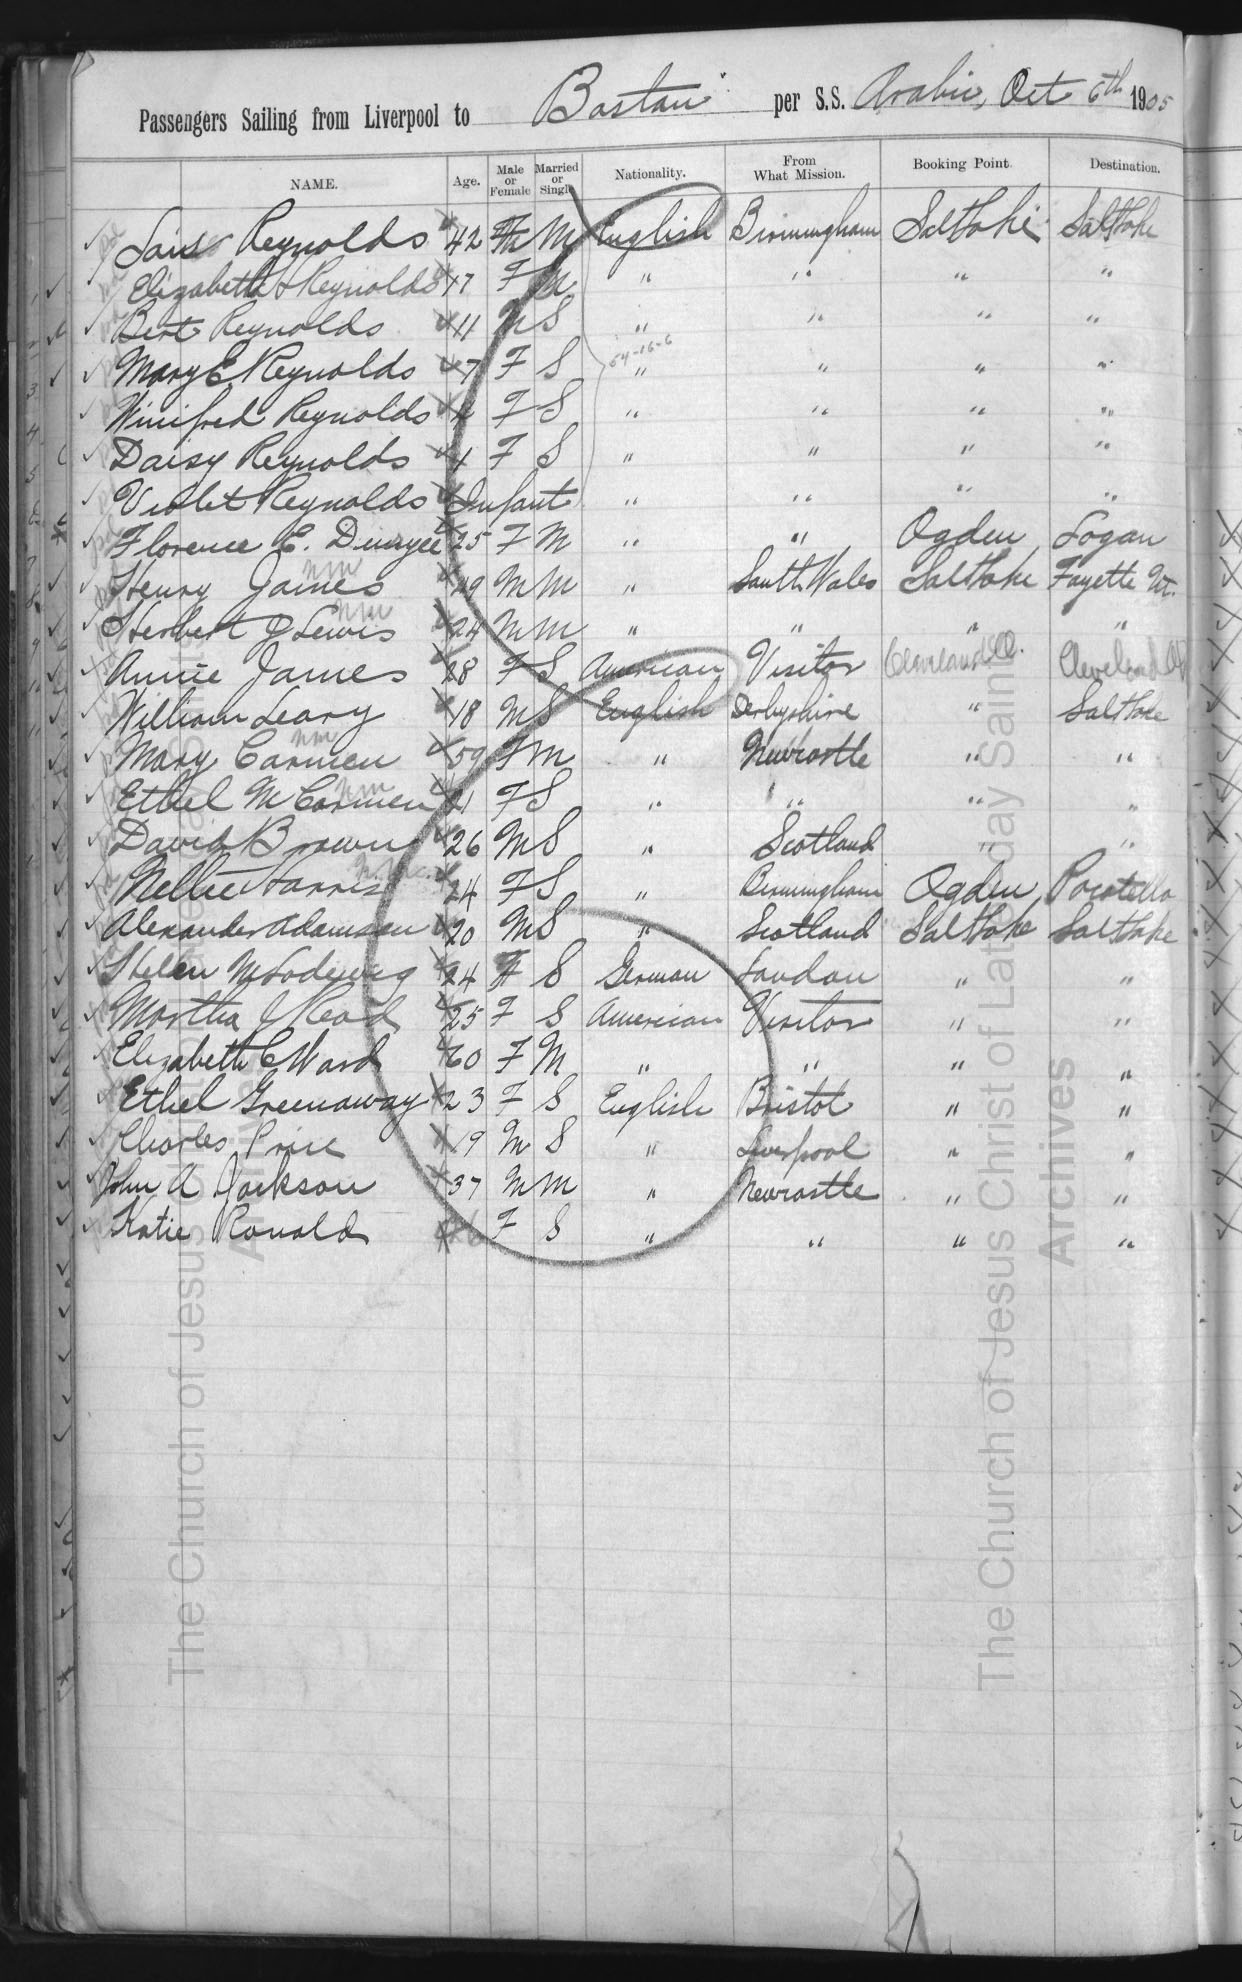 Passengers Sailing from Liverpool to Boston per S.S. Arabic, Oct 6th 1905
NAME. Age. Male or Female Married or Single Nationality. From What Mission. Booking Point. Destination.
Reynolds 42 M English Birmingham Salt Lake Salt Lake
Elizabeth Reynolds 17 F M " " " "
Bert Reynolds 11 M S " " " "
64-16-6
Mary E. Reynolds 7 F S " " " "
Winifred Reynolds 4 F S " " " "
Daisy Reynolds 1 F S " " " "
Violet Reynolds Infant " " " "
Florence E. 25 F M " " Ogden Logan
Henry James nm 49 M M " South Wales Salt Lake Fayette Ut.
Herbert J Lewis nm 24 M M " " " "
Annie James 28 F S American Visitor Cleveland O. Cleveland O
William Leary 18 M S English Derbyshire " Salt Lake
Mary Carmen nm 59 F M " Newcastle " "
Ethel M Carmen nm 21 F S " " " "
David Brown 26 M S " Scotland " "
Nellie Harris 24 F S " Birmingham Ogden Pocatello
Alexander Adamson 20 M S " Scotland Salt Lake Salt Lake
Helen M Lodewig 24 F S German London " "
Martha J Read 25 F S American Visitor " "
Elizabeth C Ward 60 F M " " " "
Ethel Greenaway 23 F S English Bristol " "
Charles Price 19 M S " Liverpool " "
John A Jackson 37 M M " Newcastle " "
Katie Ronald F S " " " "
The Church of Jesus Christ of Latter-day Saints
Archives
The Church of Jesus Christ of Latter-day Saints
Archives